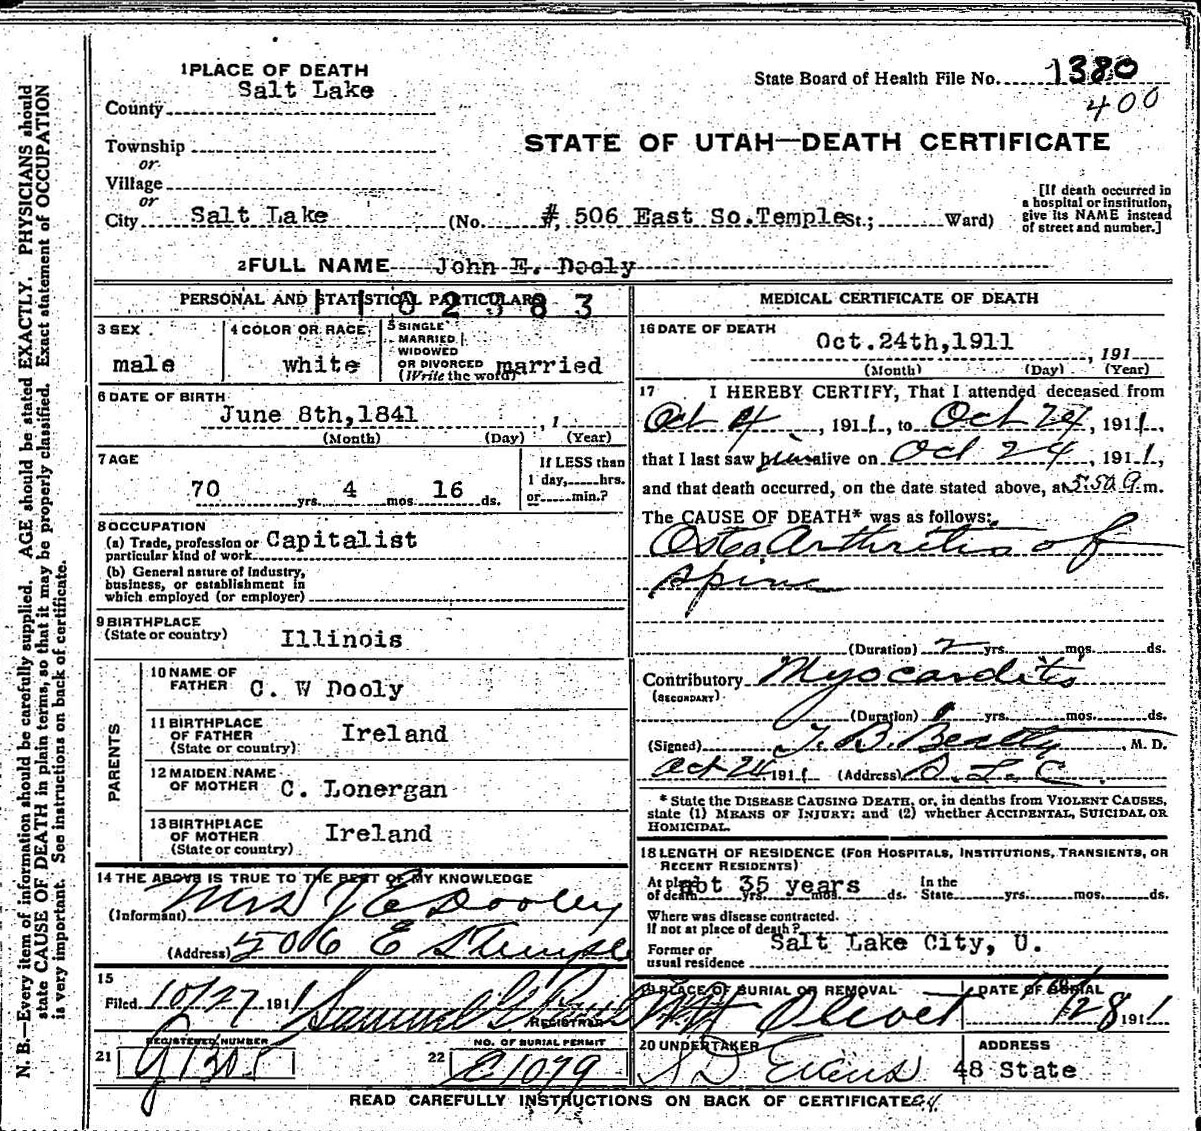 1 PLACE OF DEATH
County Salt Lake
Township
or
Village
or
City Salt Lake (No. #, 506 East So.Temple St.; Ward)
State Board of Health File No. 1380
400
STATE OF UTAH—DEATH CERTIFICATE
[If death occurred in
a hospital or institution,
give its NAME instead
of street and number.]
2 FULL NAME John E. Dooly
PERSONAL AND STATISTICAL PARTICULARS
1102383
3 SEX
male
4 COLOR OR RACE
white
5 SINGLE
MARRIED
WIDOWED
OR DIVORCED
(Write the word)
married
6 DATE OF BIRTH
June 8th,1841, 1
(Month) (Day) (Year)
7 AGE
70 yrs. 4 mos. 16 ds.
If LESS than
1 day, hrs.
or min.?
8 OCCUPATION
(a) Trade, profession or
particular kind of work Capitalist
(b) General nature of industry,
business, or establishment in
which employed (or employer)
9 BIRTHPLACE
(State or country) Illinois
PARENTS
10 NAME OF
FATHER C. W Dooly
11 BIRTHPLACE
OF FATHER
(State or country) Ireland
12 MAIDEN NAME
OF MOTHER C. Lonergan
13 BIRTHPLACE
OF MOTHER
(State or country) Ireland
14 THE ABOVE IS TRUE TO THE BEST OF MY KNOWLEDGE
(Informant) Mrs J E Dooley
(Address) 506 E S Temple
15
Filed 10/27 1911 Samuel G Paul
REGISTRAR
21 REGISTERED NUMBER
G1305
22 NO. OF BURIAL PERMIT
E1079
MEDICAL CERTIFICATE OF DEATH
16 DATE OF DEATH
Oct.24th,1911, 191
(Month) (Day) (Year)
17 I HEREBY CERTIFY, That I attended deceased from
Oct 4, 1911, to Oct 24, 1911,
that I last saw him alive on Oct 24, 1911,
and that death occurred, on the date stated above, at 5:50 a.m.
The CAUSE OF DEATH* was as follows:
Osteo Arthritis of
Spine
(Duration) 2 yrs. mos. ds.
Contributory Myocarditis
(SECONDARY)
(Duration) yrs. mos. ds.
(Signed) T. B. Beatty, M. D.
Oct 24 1911 (Address) S. L. C.
* State the DISEASE CAUSING DEATH, or, in deaths from VIOLENT CAUSES,
state (1) MEANS OF INJURY; and (2) whether ACCIDENTAL, SUICIDAL OR
HOMICIDAL.
18 LENGTH OF RESIDENCE (FOR HOSPITALS, INSTITUTIONS, TRANSIENTS, OR
RECENT RESIDENTS)
At place
of death abt 35 years yrs. mos. ds. In the
State yrs. mos. ds.
Where was disease contracted.
If not at place of death?
Former or
usual residence Salt Lake City, U.
19 PLACE OF BURIAL OR REMOVAL
Mt Olivet
DATE OF BURIAL
10/28 1911
20 UNDERTAKER
S D Evans
ADDRESS
48 State
READ CAREFULLY INSTRUCTIONS ON BACK OF CERTIFICATE
N. B.—Every item of information should be carefully supplied. AGE should be stated EXACTLY. PHYSICIANS should
state CAUSE OF DEATH in plain terms, so that it may be properly classified. Exact statement of OCCUPATION
is very important. See instructions on back of certificate.